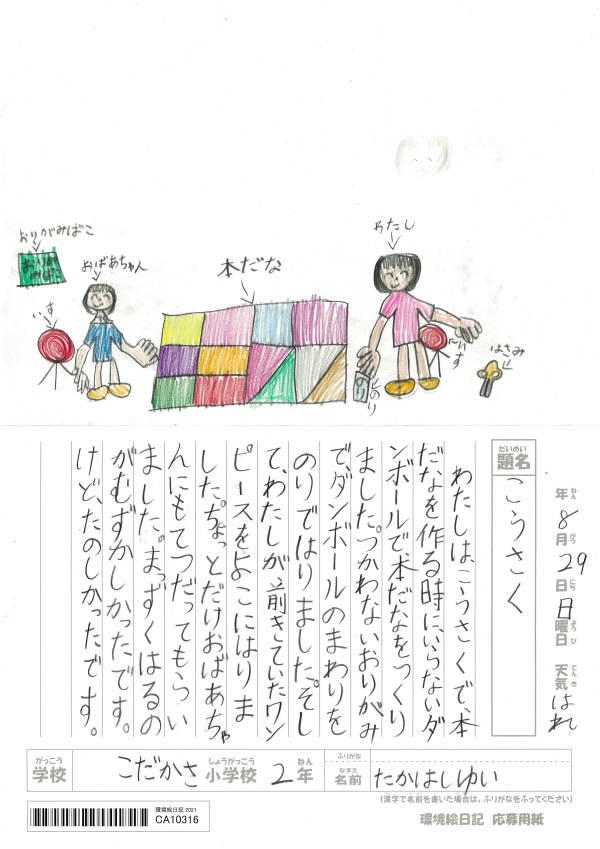 おりがみばこ
おりがみばこ
おばあちゃん
いす
本だな
わたし
いす
のり
のり
はさみ
年 8月 29日 日曜日 天気 はれ
ねん がつ にち ようび てんき
だいめい
題名
こうさく
わたしは、こうさくで、本
だなを作る時に、いらないダ
ンボールで、本だなをつくり
ました。つかわないおりがみ
で、ダンボールのまわりを
のりではりました。そし
て、わたしが前きていたワン
ピースをよこにはりま
した。ちょっとだけおばあちゃ
んにもてつだってもらい
ました。まっずくはるの
がむずかしかったです。
けど、たのしかったです。
がっこう しょうがっこう ねん
学校 こだかさ 小学校 2年
ふりがな
なまえ
名前 たかはしゆい
(漢字で名前を書いた場合は、ふりがなをふってください)
環境絵日記 2021
CA10316
環境絵日記 応募用紙